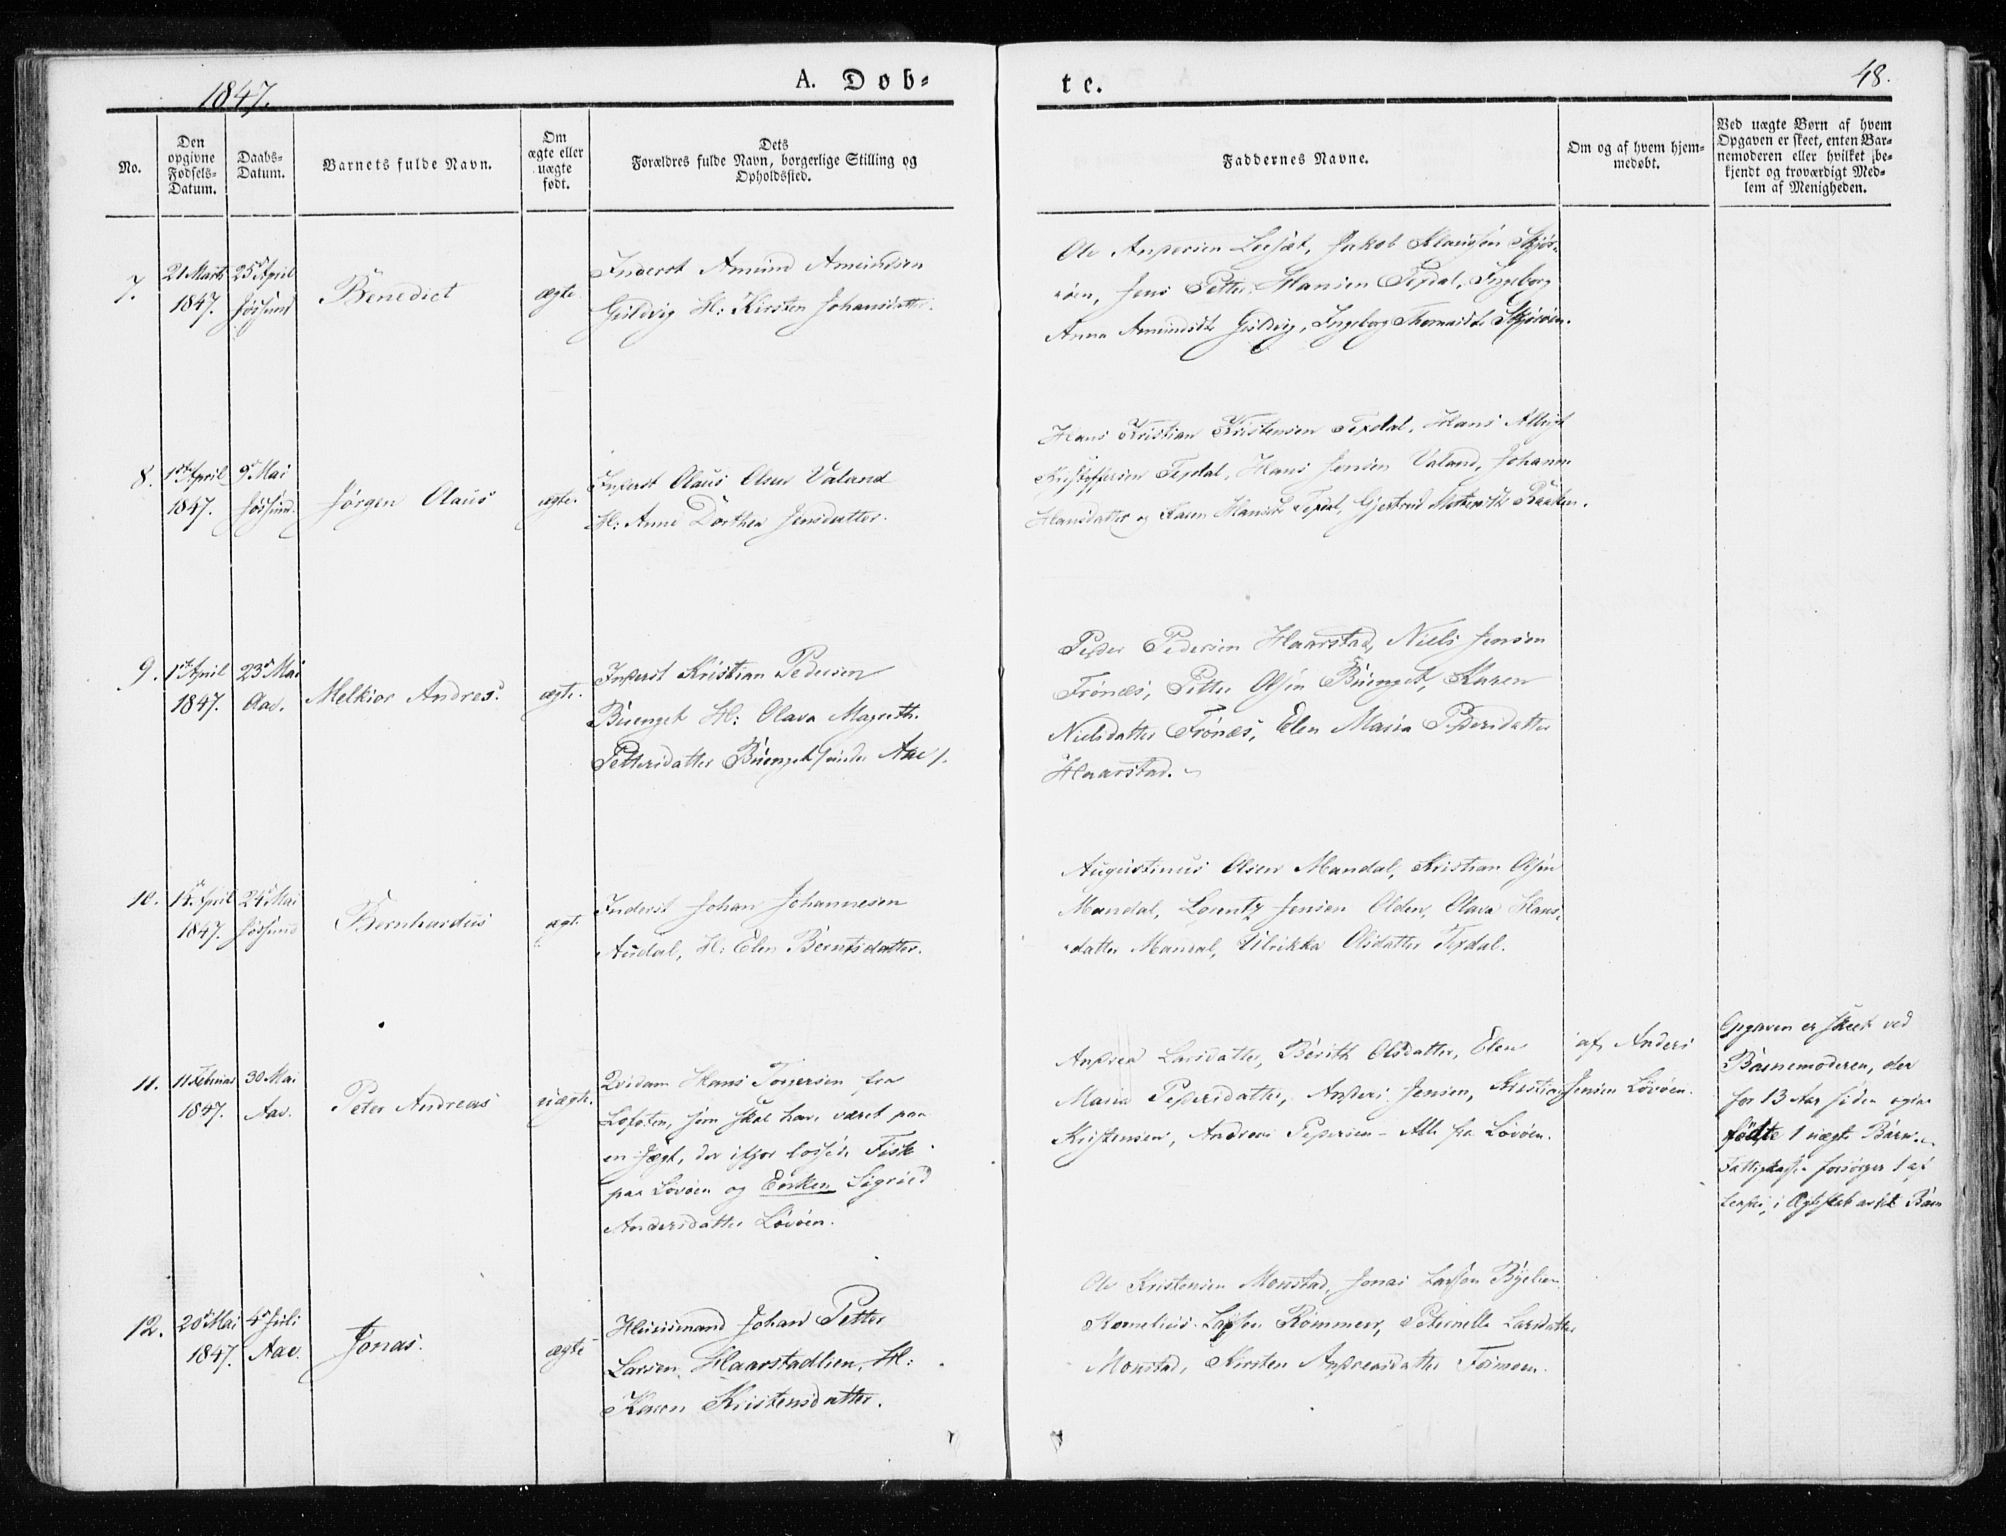 1847.
A. Døb-
te.
48.
No.
Den
opgivne
Fødsels-
Datum.
Daabs-
Datum.
Barnets fulde Navn.
Om
ægte eller
uægte
født.
Dets
Forældres fulde Navn, borgerlige Stilling og
Opholdssted.
Faddernes Navne.
Om og af hvem hjem-
medøbt.
Ved uægte Børn af hvem
Opgaven er skeet, enten Bar-
nemoderen eller hvilket be-
kjendt og troværdigt Med-
lem af Menigheden.
7.
21 Marts
1847.
25d April
Jøssund
Benedict
ægte.
Inderst Amund Amundsen
Gildvig H: Kirsten Johansdatter.
Ole Andersen Jakob
Jens Petter Hansen Texdal, Ingeborg
Anna Amundsdt Gildvig, Ingeborg Thomasdt
8.
1st April
1847.
9d Mai
Jøssund.
Jørgen Olaus
ægte.
Inderst Olaus Olsen Valand
H: Anne Dorthea Jensdatter.
Hans Kristian Kristensen Texdal, Hans
Kristoffersen Texdal, Hans Jensen Valand, Johanna
Hansdatter og Karen Hansdt Texdal, Gjertrud
9.
1st April
1847.
23d Mai
Aav.
Melkior Andreas.
ægte.
Inderst Kristian Pedersen
Buenget H: Olava Magreth.
Pettersdatter Buenget /under Aae/.
Peder Pedersen Haarstad, Niels Jensen
Frönæs, Petter Olsen Buenget, Karen
Nielsdatter Frönæs, Elen Maria Pedersdatter
Haarstad.
10.
14d April
1847.
24d Mai
Jøssund
Bernhardus
ægt.
Inderst Johan Johannesen
Audal, H: Elen Berntsdatter.
Augustinus Olsen Mandal, Kristian Olsen
Mandal, Lorentz Jensen Olden, Olava Hans-
datter Mandal, Ulrikka Olsdatter Texdal.
11.
11 Februar
1847.
30 Mai
Aav.
Peter Andreas
uægte.
Hans Tonersen fra
Lofoten, som skal have været paa
en Jægt, der ifjor lossede Fisk
paa Lövöen og Enken Sigrid
Andersdatter Lövöen.
Andrea Larsdatter, Berith Olsdatter, Elen
Maria Pedersdatter, Anders Jensen, Kristian
Kristensen, Andreas Pedersen - Alle fra Lövöen.
af Anders
Jensen Lövöen.
Opgaven er skeet ved
Barnemoderen, der
for 13 Aar siden ogsaa
födte 1 uægte Barn.
Fattigkassen forsörger 1 af
i Ægteskab avlet Barn
12.
20d Mai
1847.
4d Juli
Aav.
Jonas.
ægte
Huusmand Johan Petter
Larsen Haarstadlien, H:
Karen Kristensdatter.
Ole Kristensen Monstad, Jonas Larsen
Kornelius Larsen Römmen, Peternelle Larsdatter
Monstad, Kirsten Andreasdatter